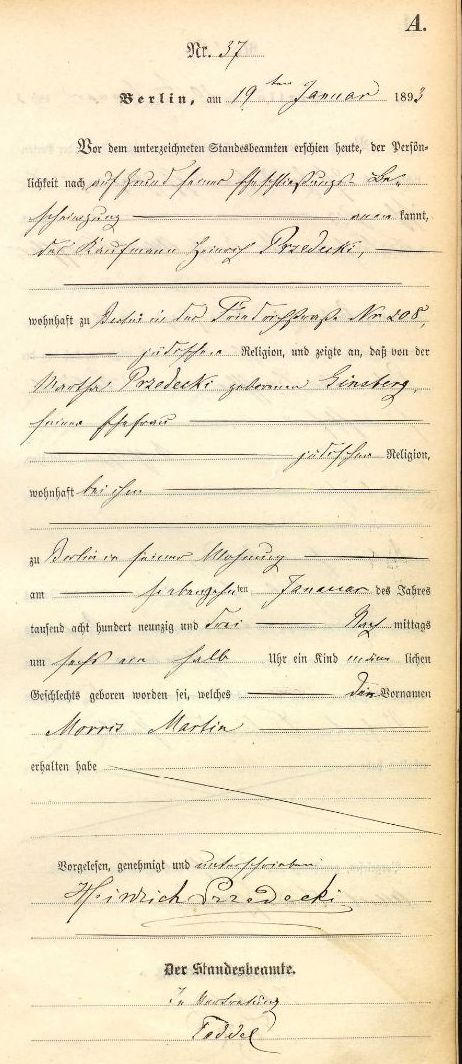 A.
Nr. 37
Berlin, am 19ten Januar 1893
Vor dem unterzeichneten Standesbeamten erschien heute, der Persön-
lichkeit nach auf Grund seiner Eheschließungs-Be-
scheinigung anerkannt,
der Kaufmann Heinrich Przedecki,
wohnhaft zu Berlin in der Friedrichstraße Nr. 208,
jüdischer Religion, und zeigte an, daß von der
Martha Przedecki geborenen Ginsberg,
seiner Ehefrau
jüdischer Religion,
wohnhaft bei ihm
zu Berlin in seiner Wohnung
am siebenzehnten Januar des Jahres
tausend acht hundert neunzig und drei Nachmittags
um sechs ein halb Uhr ein Kind männlichen
Geschlechts geboren worden sei, welches die Vornamen
Morris Martin
erhalten habe
Vorgelesen, genehmigt und unterschrieben
Heinrich Przedecki
Der Standesbeamte.
In Vertretung